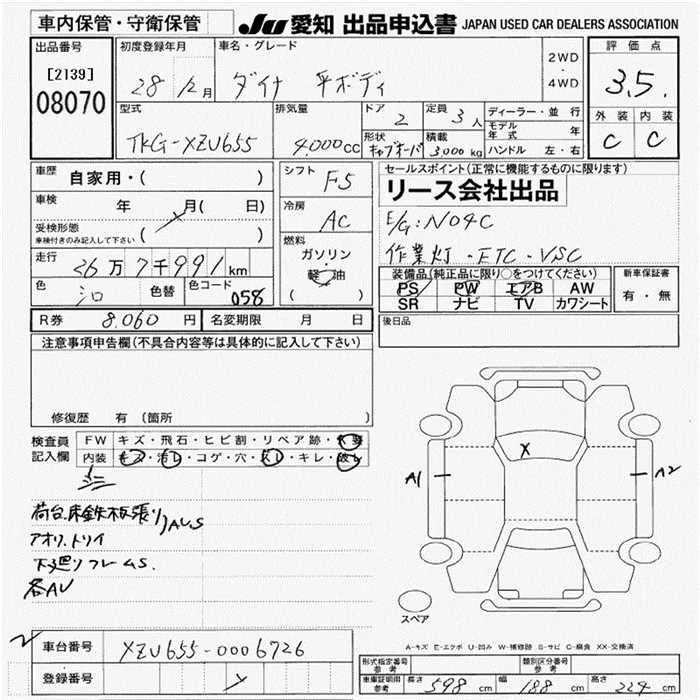 車内保管・守衛保管
JU 愛知 出品申込書 JAPAN USED CAR DEALERS ASSOCIATION
出品番号
[2139]
08070
初度登録年月
28 年 12月
車名・グレード
ダイナ 平ボディ
2WD
・
4WD
評価点
3.5.
外装 内装
C C
型式
TKG-XZU655
排気量
4,000cc
ドア
2
定員
3人
ディーラー・並行
モデル年式 年
ハンドル 左・右
形状
キャブオーバ
積載
3,000kg
車歴
自家用・( )
車検
年 月( 日)
受検形態
車検付きのみ記入して下さい
( )
走行
26万7千991km
色
シロ
色替
色コード
058
シフト
F5
冷房
AC
燃料
ガソリン
軽油
( )
セールスポイント(正常に機能するものに限ります)
リース会社出品
E/G:N04C
作業灯・ETC・VSC
装備品(純正品に限り○をつけてください)
PS PW エアB AW
SR ナビ TV カワシート
新車保証書
有・無
R券 8,060円
名変期限 月 日
後日品
注意事項申告欄(不具合内容等は具体的に記入して下さい)
修復歴 有(箇所 )
検査員
記入欄
FW キズ・飛石・ヒビ割・リペア跡・交要
内装 キズ・汚レ・コゲ・穴・スレ・キレ・破レ
荷台.床鉄板張り)AUS
アオリ.トリイ
下廻りフレームS.
各AU
X
A1
A2
スペア
A-キズ E-エクボ U-凹み W-補修跡 S-サビ C-腐食 XX-交換済
車台番号 XZU655-0006726
登録番号
形式指定番号
参考
類別区分番号
参考
車庫証明用
参考
長さ 598cm 幅 188cm 高さ 224cm